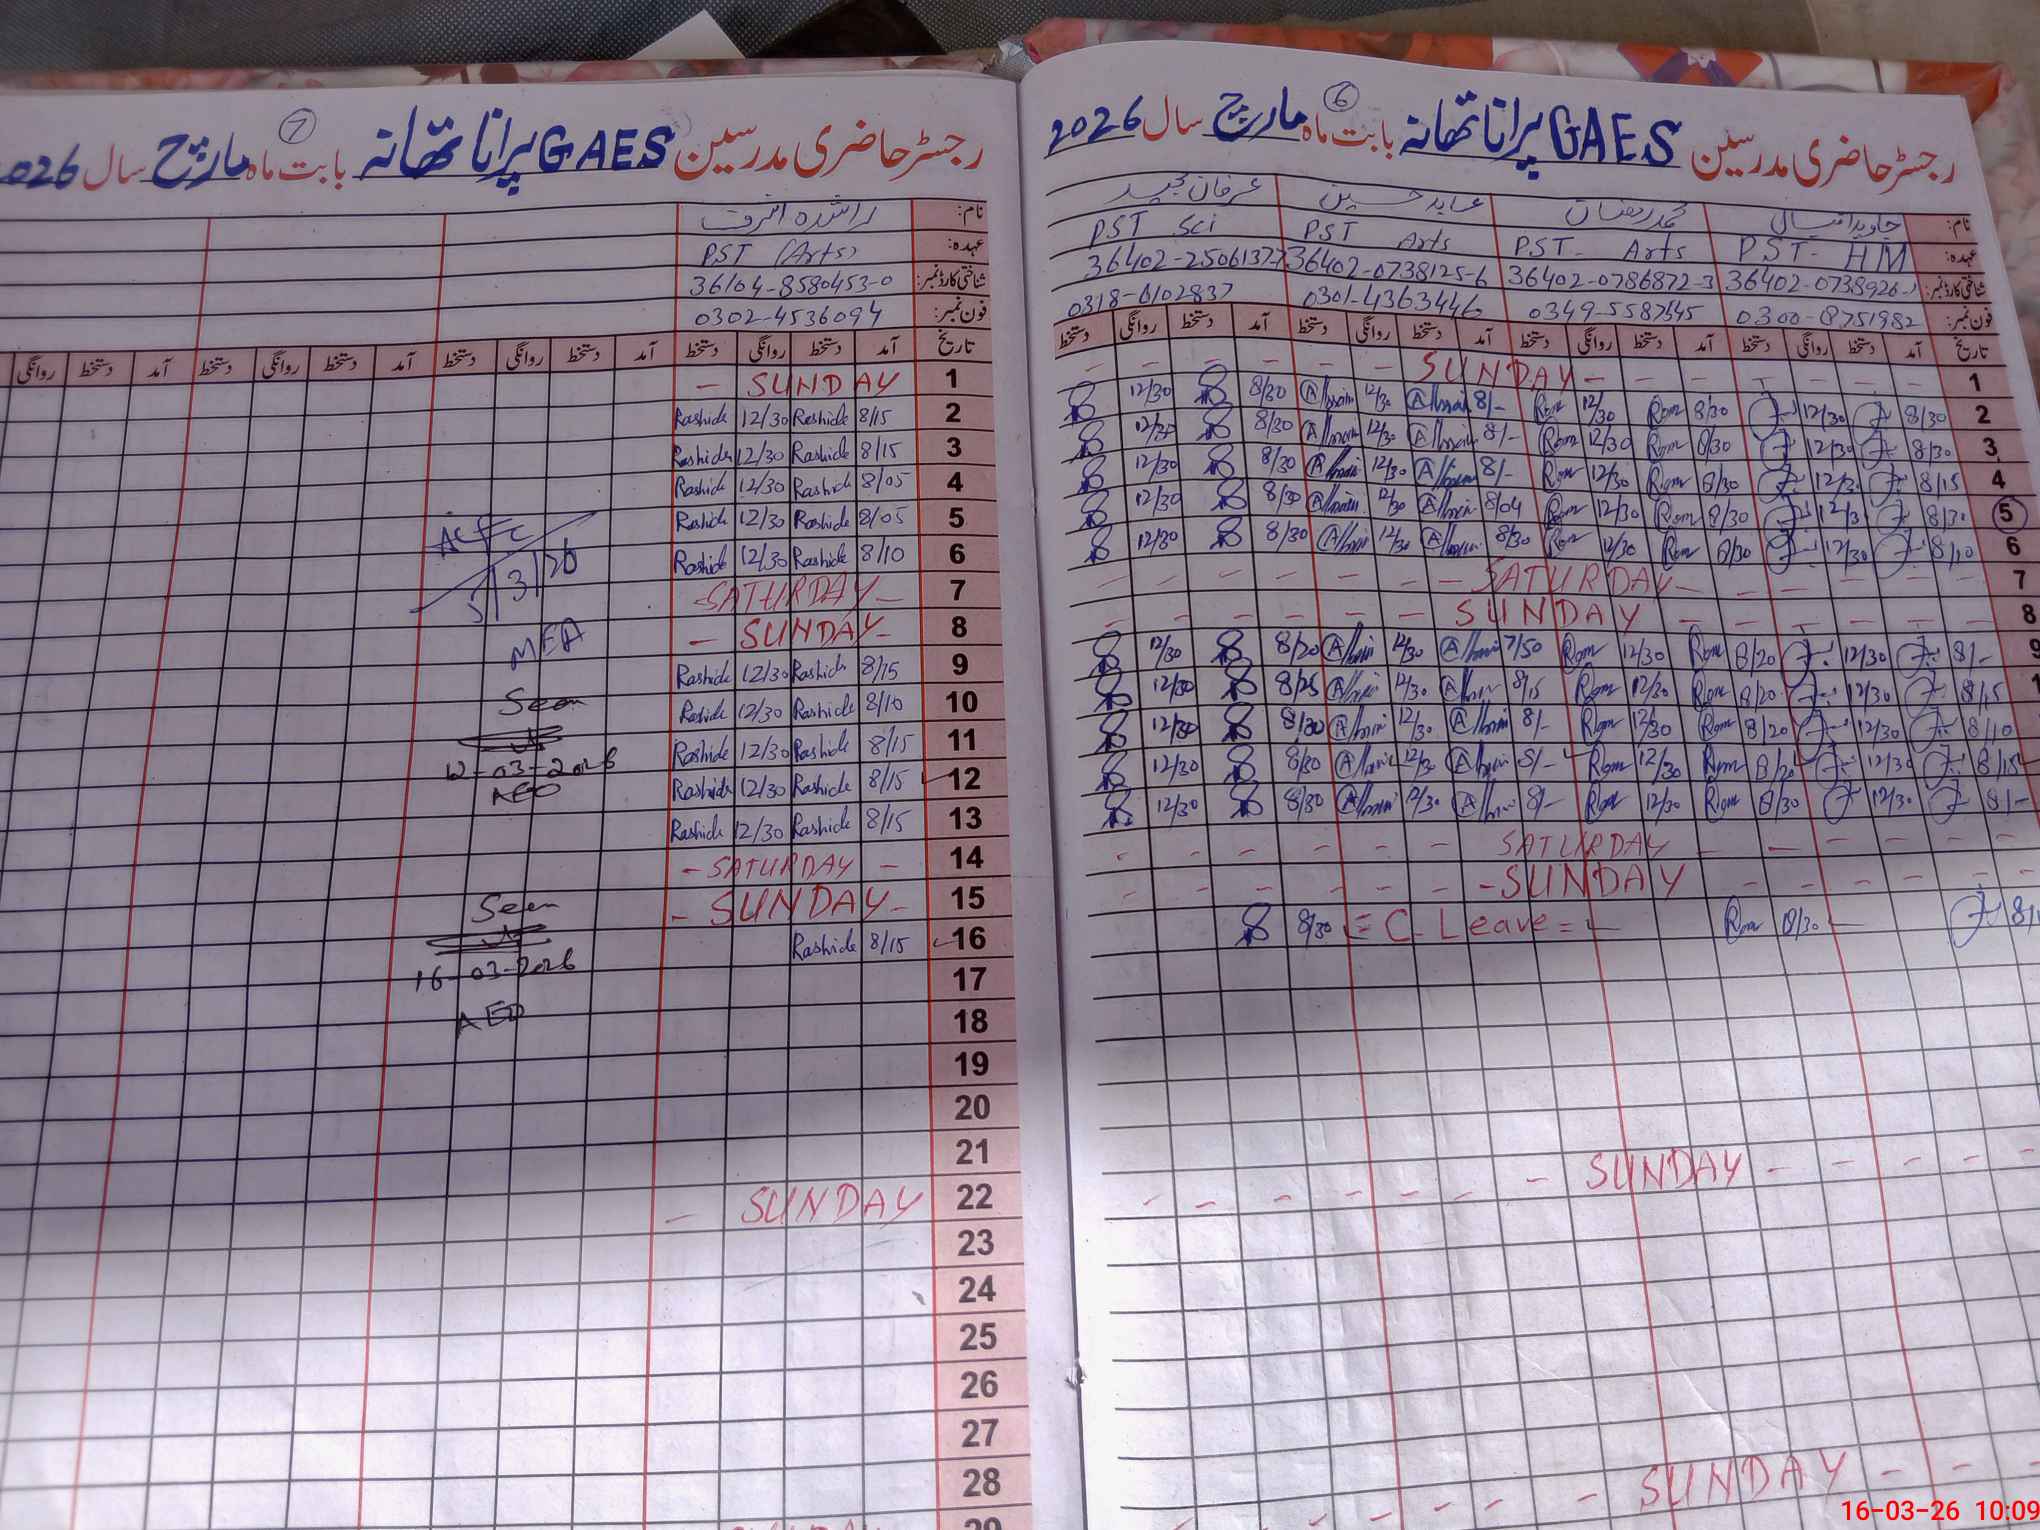 رجسٹر حاضری مدرسین GAES پرانا تھانہ بابت ماہ مارچ سال 2026
6
نام: جاوید اقبال محمد رمضان عابد حسین عرفان مجید
عہدہ: PST- HM PST- Arts PST Arts PST Sci
شناختی کارڈ نمبر: 36402-0738926-1 36402-0786872-3 36402-0738125-6 36402-2506137-7
فون نمبر: 0300-8751982 0349-5587545 0301-4363446 0318-6102837
تاریخ آمد دستخط روانگی دستخط آمد دستخط روانگی دستخط آمد دستخط روانگی دستخط آمد دستخط روانگی دستخط
1 SUNDAY
2 8/30 12/30 8/30 Rom 12/30 Rom 8/- 12/30 8/30 12/30
3 8/30 12/30 8/30 Rom 12/30 Rom 8/- 12/30 8/30 12/30
4 8/15 12/30 8/30 Rom 12/30 Rom 8/- 12/30 8/30 12/30
5 8/30 12/30 8/30 Rom 12/30 Rom 8/04 12/30 8/30 12/30
6 8/10 12/30 8/30 Rom 12/30 Rom 8/30 12/30 8/30 12/30
7 SATURDAY
8 SUNDAY
9 8/- 12/30 8/20 Rom 12/30 Rom 7/50 12/30 8/20 12/30
1 8/15 12/30 8/20 Rom 12/30 Rom 8/15 12/30 8/25 12/30
8/10 12/30 8/20 Rom 12/30 Rom 8/- 12/30 8/30 12/30
8/15 12/30 8/20 Rom 12/30 Rom 8/- 12/30 8/30 12/30
8/- 12/30 8/30 Rom 12/30 Rom 8/- 12/30 8/30 12/30
SATURDAY
SUNDAY
8/30 Rom = C. Leave = 8/30
SUNDAY
SUNDAY
رجسٹر حاضری مدرسین GAES پرانا تھانہ بابت ماہ مارچ سال 2026
7
نام: راشدہ اشرف
عہدہ: PST (Arts)
شناختی کارڈ نمبر: 36104-8580453-0
فون نمبر: 0302-4536094
تاریخ آمد دستخط روانگی دستخط آمد دستخط روانگی دستخط آمد دستخط روانگی دستخط آمد دستخط روانگی
1 SUNDAY
2 8/15 Rashide 12/30 Rashide
3 8/15 Rashide 12/30 Rashide
4 8/05 Rashide 12/30 Rashide
5 8/05 Rashide 12/30 Rashide
6 8/10 Rashide 12/30 Rashide
7 SATURDAY
8 SUNDAY
9 8/15 Rashide 12/30 Rashide
10 8/10 Rashide 12/30 Rashide
11 8/15 Rashide 12/30 Rashide
12 8/15 Rashide 12/30 Rashide
13 8/15 Rashide 12/30 Rashide
14 SATURDAY
15 SUNDAY
16 8/15 Rashide
17
18
19
20
21
22 SUNDAY
23
24
25
26
27
28
29 SUNDAY
5/3/26
MEA
Seen
12-03-2026
AEO
Seen
16-03-2026
AEO
16-03-26 10:09